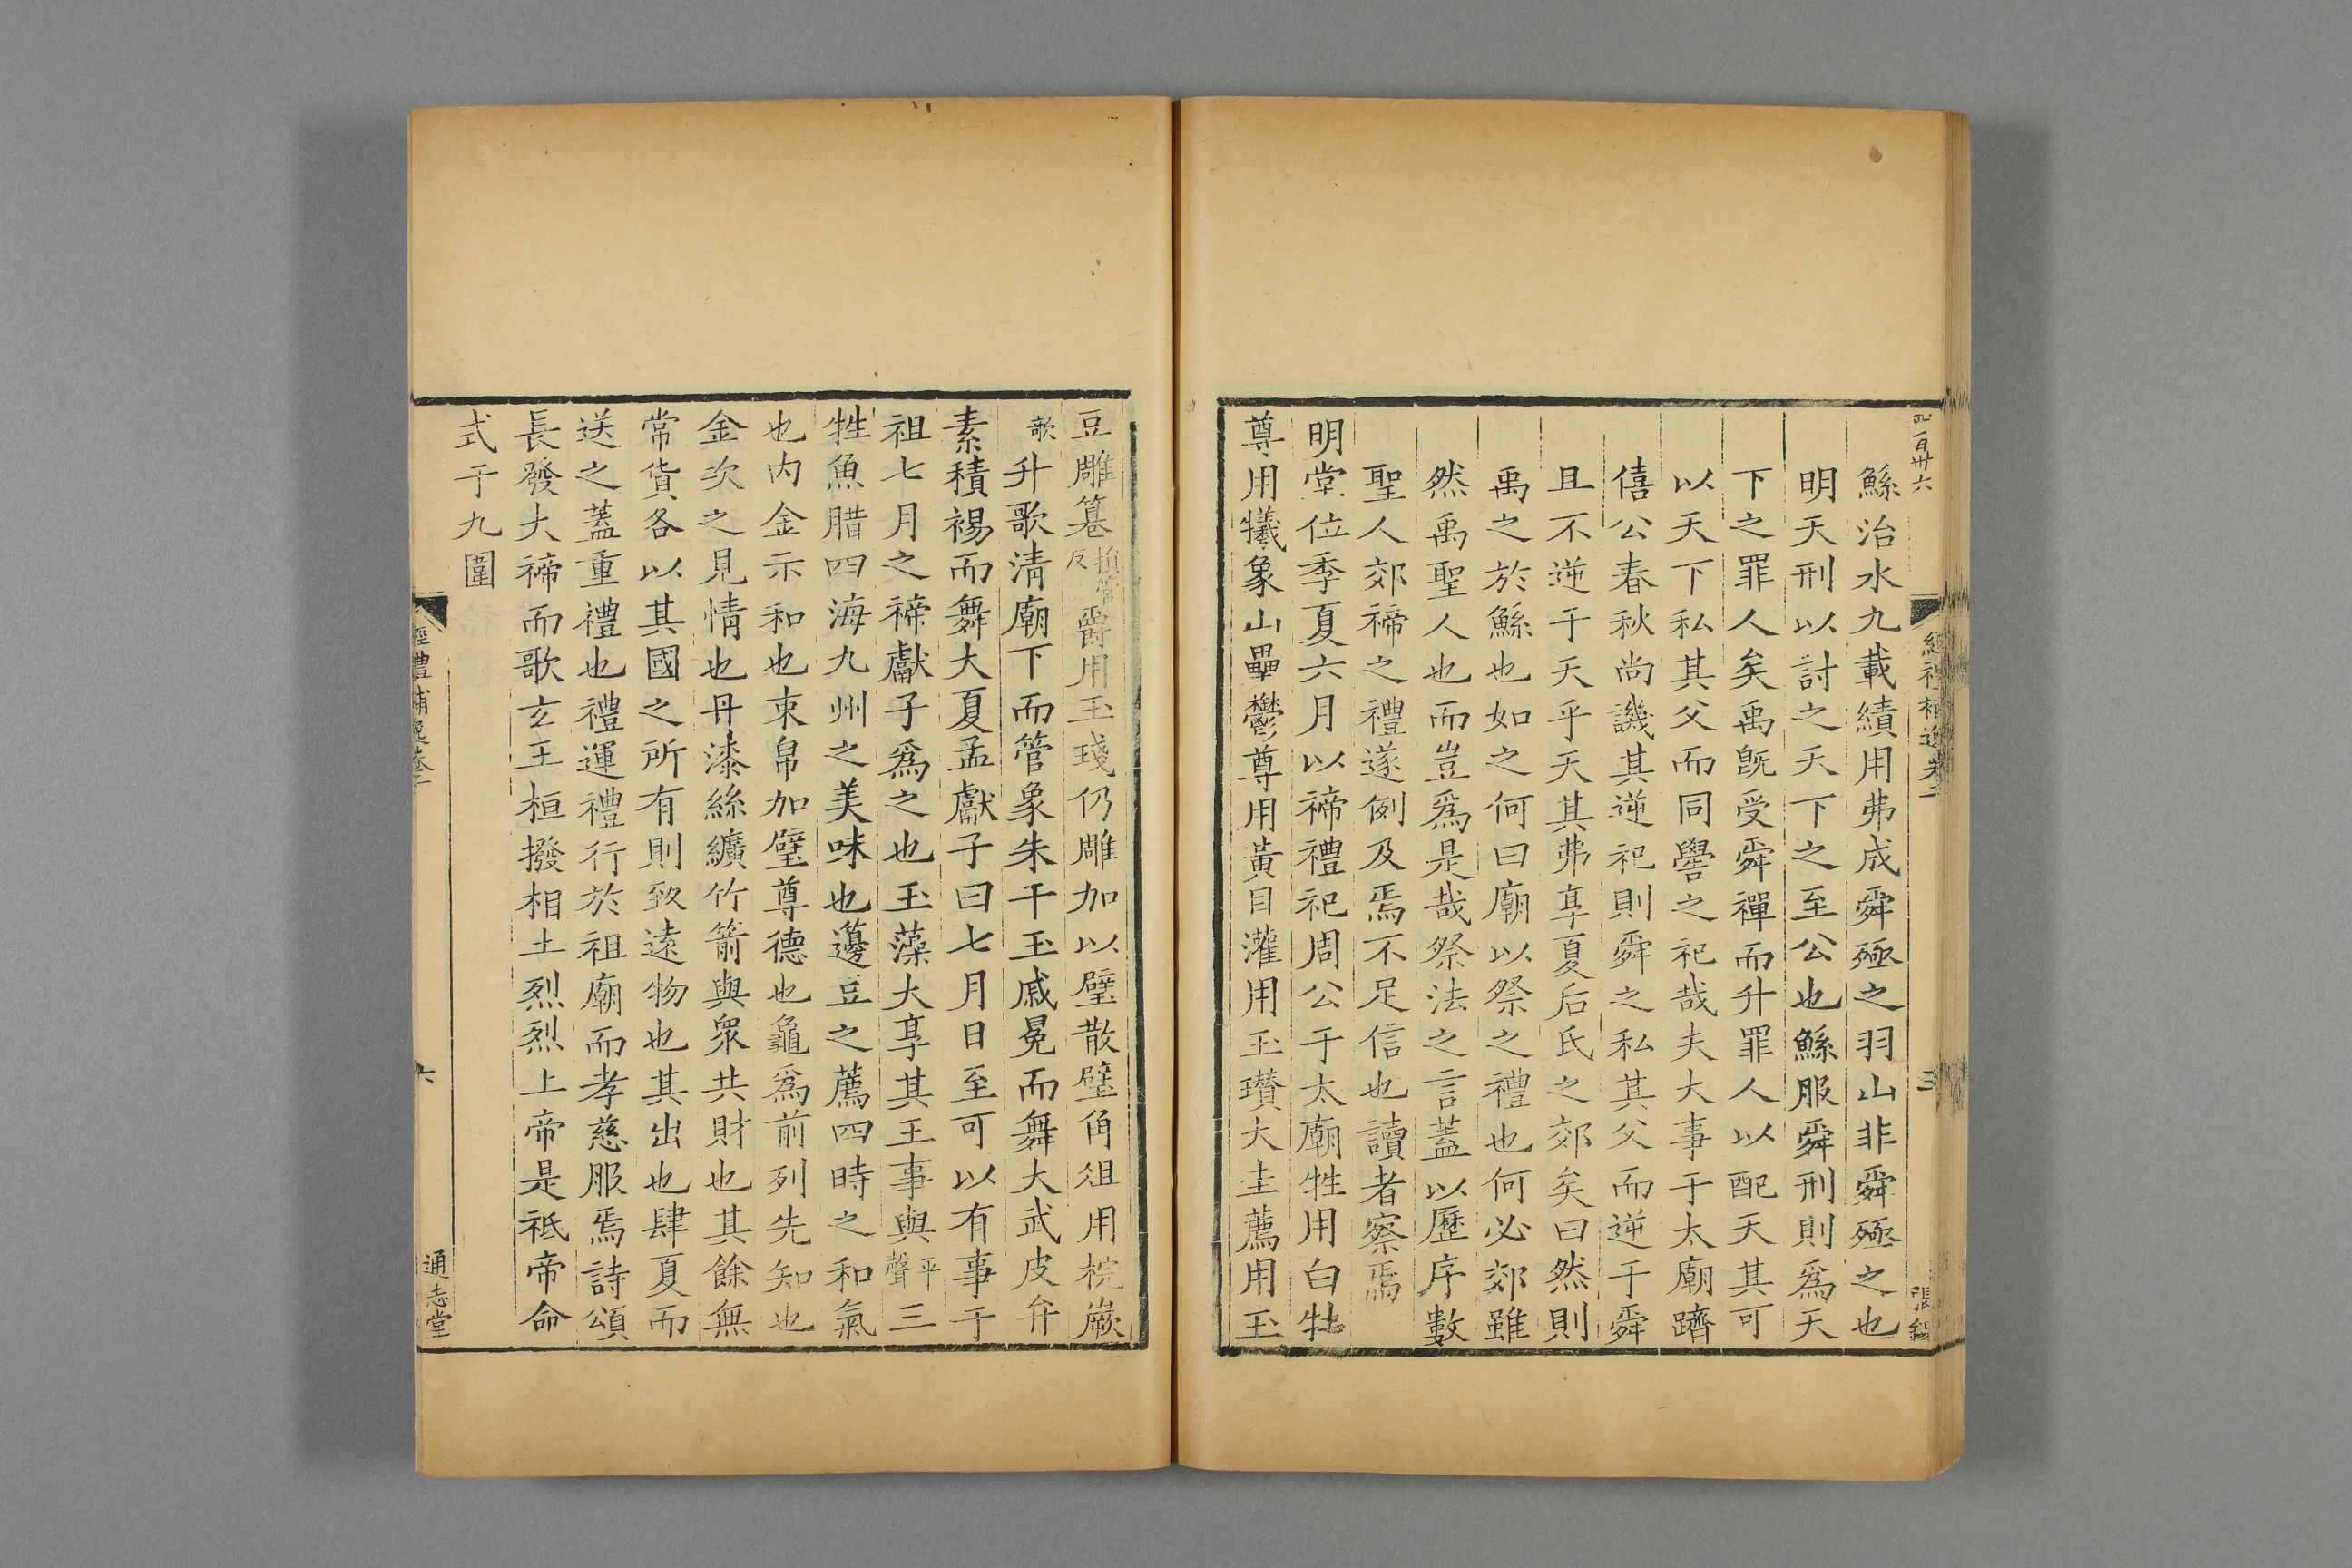 鯀治水九載績用弗成舜殛之羽山非舜殛之也
明天刑以討之天下之至公也鯀服舜刑則爲天
下之罪人矣禹旣受舜禪而升罪人以配天其可
以天下私其父而同嚳之祀哉夫大事于太廟躋
僖公春秋尚譏其逆祀則舜之私其父而逆于舜
且不逆于天乎天其弗享夏后氏之郊矣曰然則
禹之於鯀也如之何曰廟以祭之禮也何必郊雖
然禹聖人也而豈爲是哉祭法之言蓋以歷序數
聖人郊禘之禮遂例及焉不足信也讀者察焉
明堂位季夏六月以禘禮祀周公于太廟牲用白牡
尊用犧象山罍鬱尊用黃目灌用玉瓚大圭薦用玉
豆雕篹損管反爵用玉琖仍雕加以璧散璧角俎用梡嶡
歌升歌淸廟下而管象朱干玉戚冕而舞大武皮弁
素積裼而舞大夏孟獻子曰七月日至可以有事于
祖七月之禘獻子爲之也玉藻大享其王事與平聲三
牲魚腊四海九州之美味也籩豆之薦四時之和氣
也内金示和也束帛加璧尊德也龜爲前列先知也
金次之見情也丹漆絲纊竹箭與衆共財也其餘無
常貨各以其國之所有則致遠物也其出也肆夏而
送之蓋重禮也禮運禮行於祖廟而孝慈服焉詩頌
長發大禘而歌玄王桓撥相土烈烈上帝是祗帝命
式于九圍
經禮補逸卷二
六
通志堂